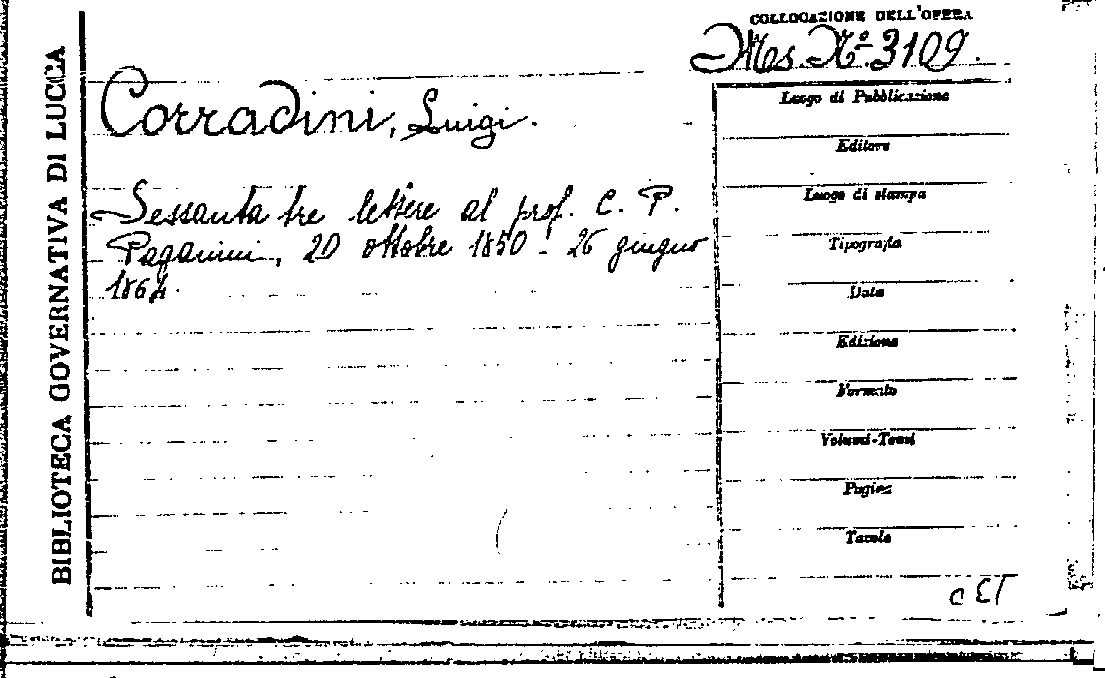 BIBLIOTECA GOVERNATIVA DI LUCCA
COLLOCAZIONE DELL'OPERA
Ms. N.º 3109.
Corradini, Luigi.
Sessanta tre lettere al prof. C. P.
Paganini, 20 ottobre 1850 - 26 giugno
1864.
Luogo di Pubblicazione
Editore
Luogo di stampa
Tipografia
Data
Edizione
Formato
Volumi-Tomi
Pagine
Tavole